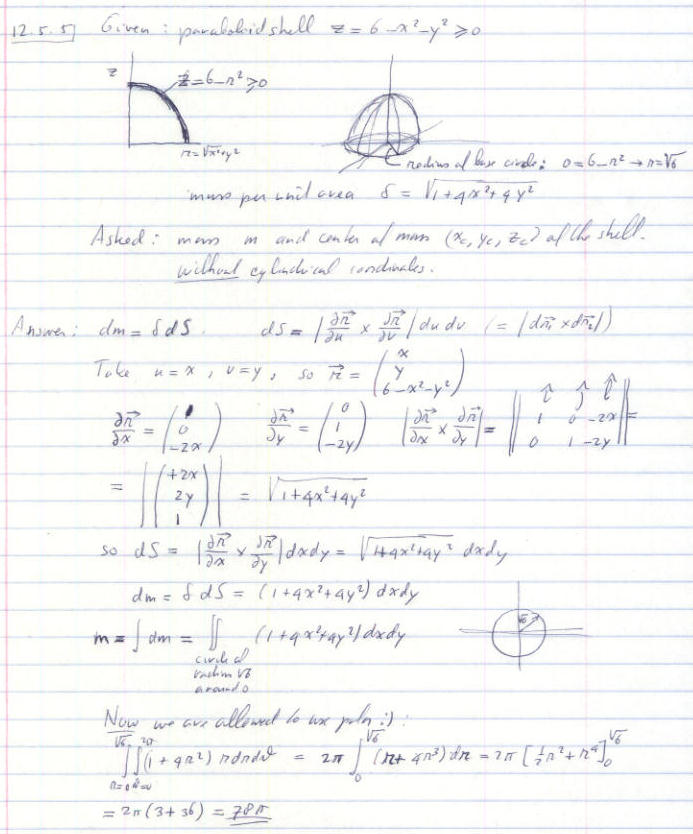 12.5.5] Given : paraboloid shell z = 6 - x² - y² ≥ 0
z
z = 6 - r² ≥ 0
r = √x²+y²
radius of base circle : 0 = 6 - r² → r = √6
mass per unit area δ = √(1+4x²+4y²)
Asked : mass m and center of mass (x_c, y_c, z_c) of the shell.
without cylindrical coordinates.
Answer : dm = δ dS . dS = |∂r⃗/∂u × ∂r⃗/∂v| du dv (= |dr⃗₁ × dr⃗₂|)
Take u = x , v = y , so r⃗ = (x, y, 6-x²-y²)
∂r⃗/∂x = (1, 0, -2x) ∂r⃗/∂y = (0, 1, -2y) |∂r⃗/∂x × ∂r⃗/∂y| = || î ĵ k̂; 1 0 -2x; 0 1 -2y || =
= |(+2x, 2y, 1)| = √(1+4x²+4y²)
so dS = |∂r⃗/∂x × ∂r⃗/∂y| dxdy = √(1+4x²+4y²) dxdy
dm = δ dS = (1+4x²+4y²) dxdy
m = ∫ dm = ∬ (1+4x²+4y²) dxdy
circle of
radius √6
around 0
√6
Now we are allowed to use polar :) :
∫_{r=0}^{√6} ∫_{ϑ=0}^{2π} (1 + 4r²) r dr dϑ = 2π ∫_0^{√6} (r + 4r³) dr = 2π [½r² + r⁴]_0^{√6}
= 2π (3 + 36) = 78π